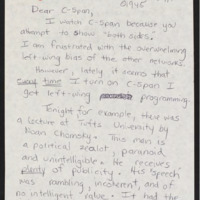 Dear C-Span,
I watch C-Span because you
attempt to show "both sides."
I am frustrated with the overwhelming
left-wing bias of the other networks.
However, lately it seems that
every time I turn on C-Span I
get left-wing programming.
Tonight for example, there was
a lecture at Tufts University by
Noam Chomsky. This man is
a political zealot, paranoid,
and unintelligible. He receives
plenty of publicity. His speech
was rambling, incoherent, and of
no intelligent value. It had the